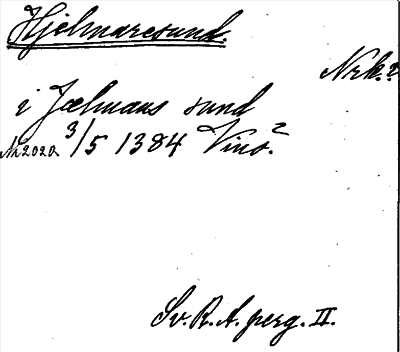 Hjelmaresund.
Nrk.?
i Jælmans sund
Nr 2020 3/5 1384 Vinö?
Sv. R. A. perg. II.